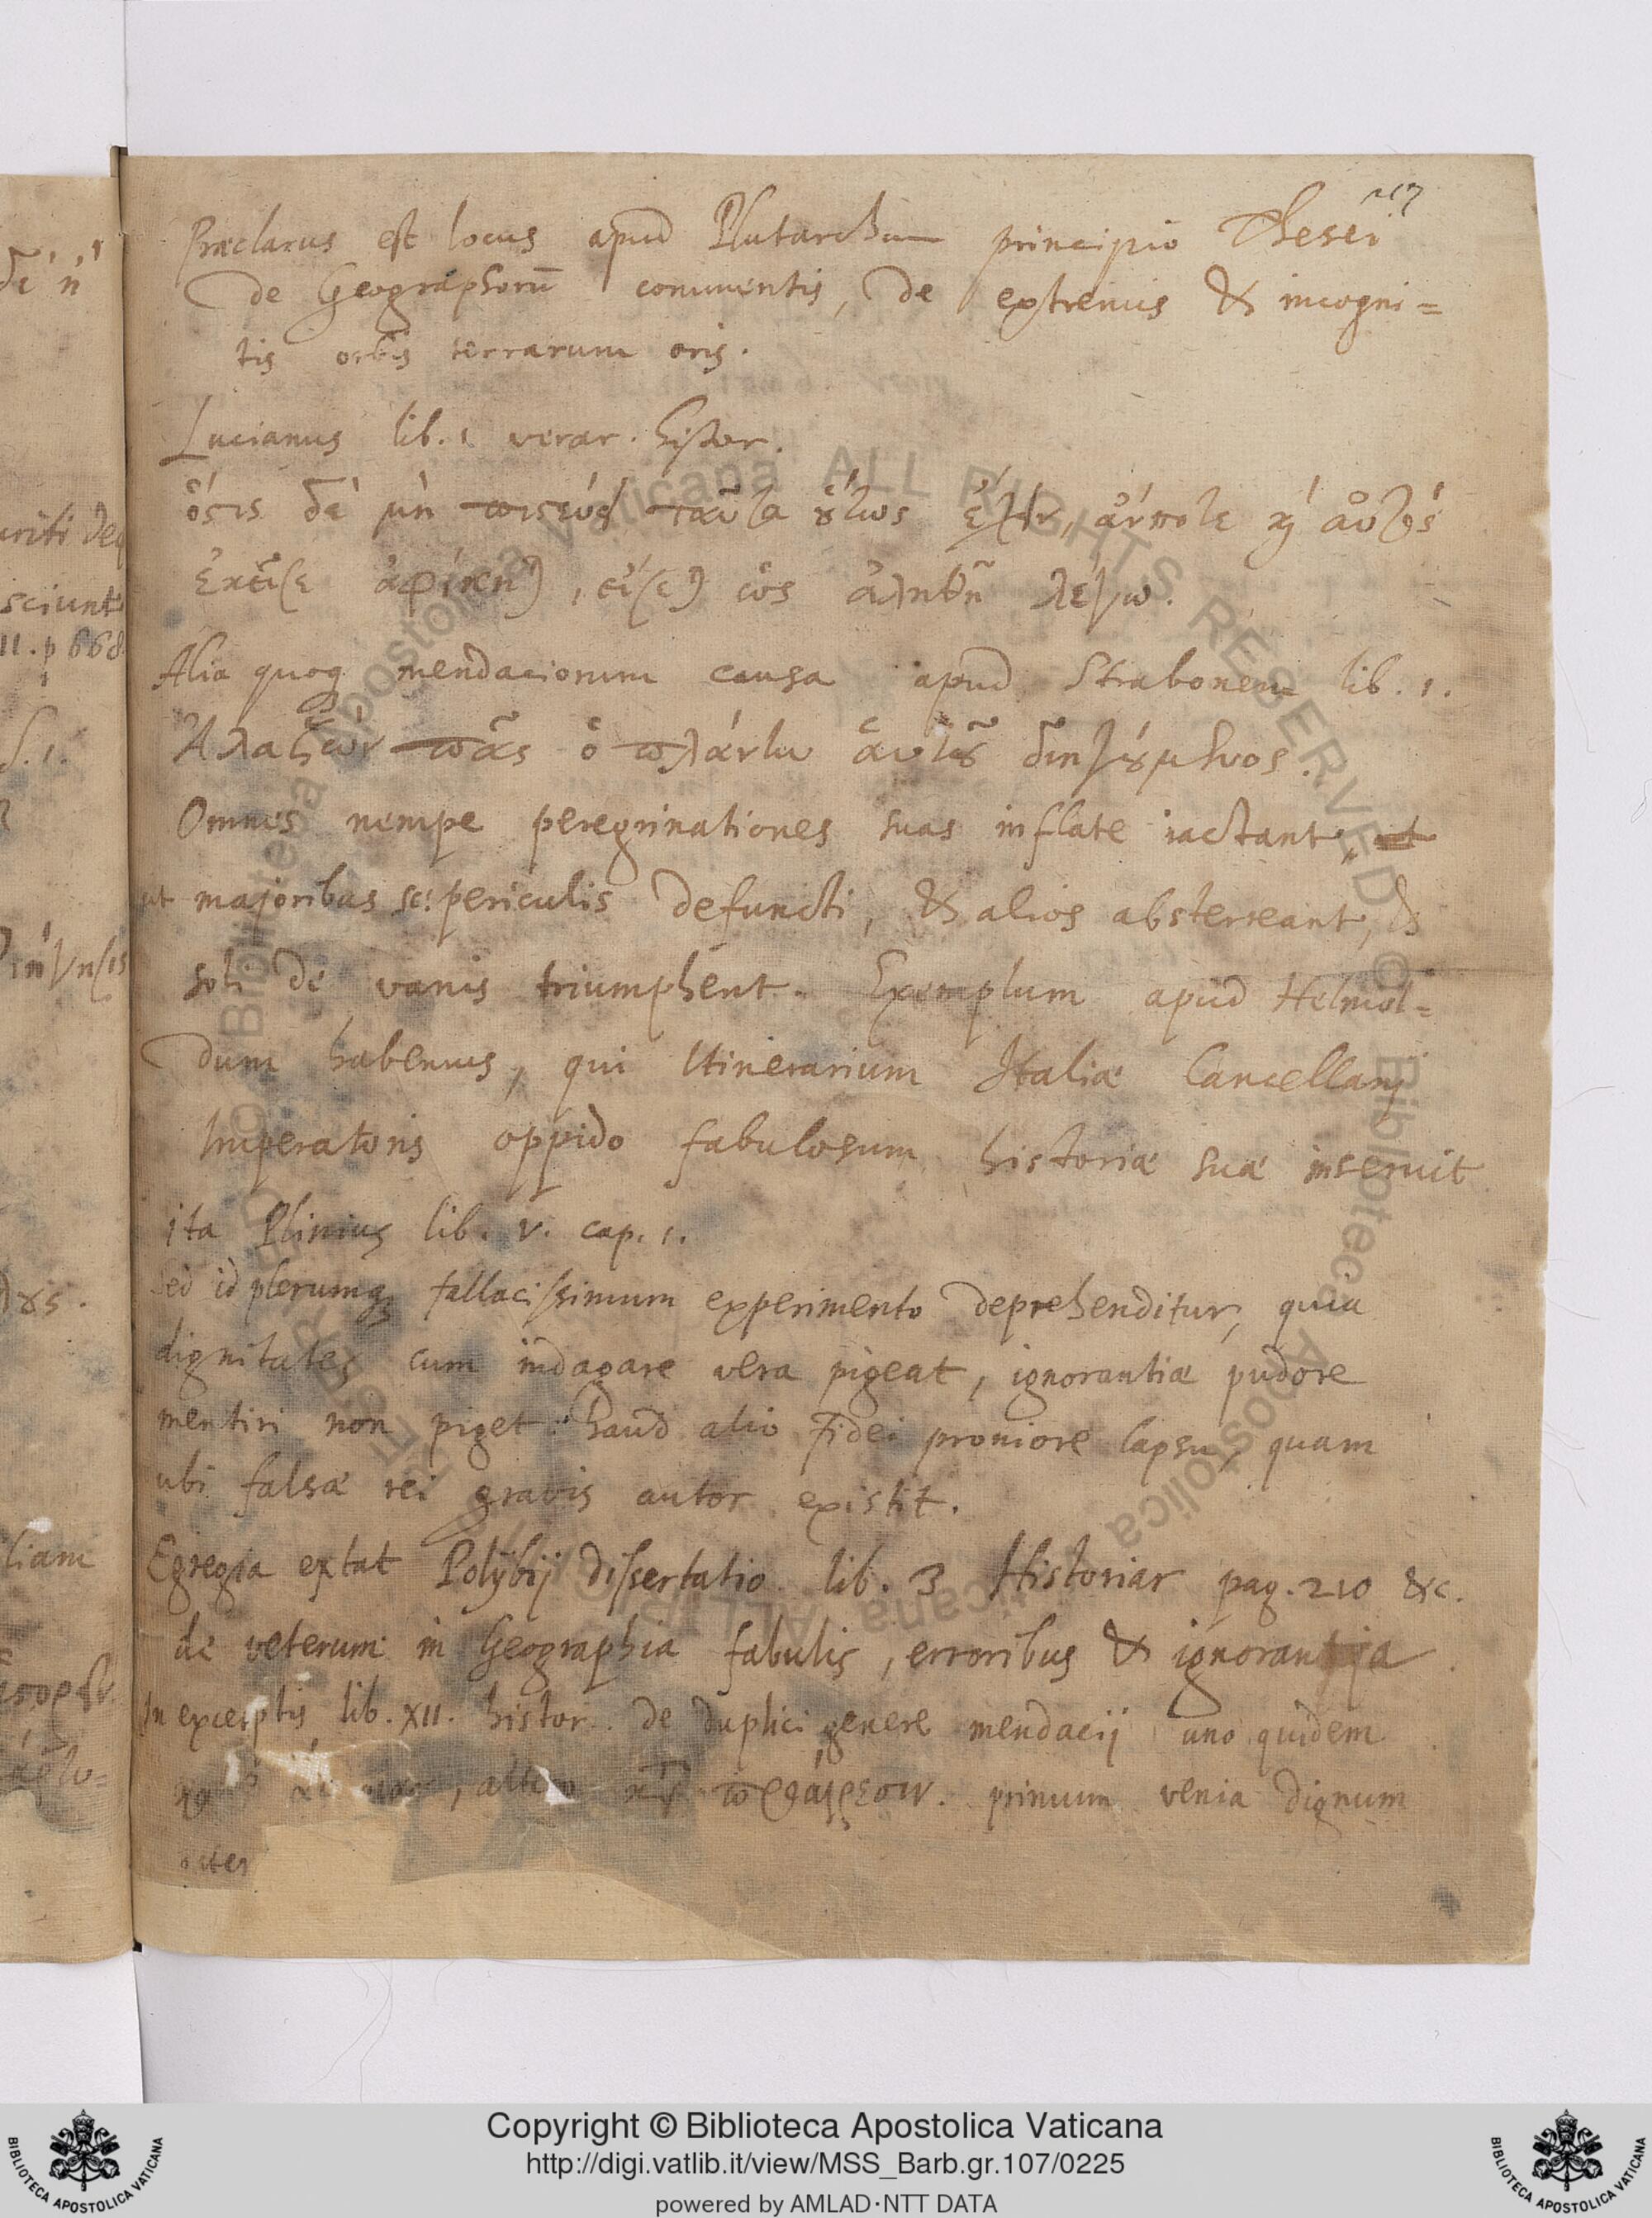 Præclarus est locus apud Plutarchum principio Thesei
de Geographorū commentis, de extremis & incogni=
tis orbis terrarum oris.
Lucianus lib. 1 verar. histor.
ὅστις δὲ μὴ πιστεύει ταῦτα οὕτως ἔχειν, ἄν ποτε καὶ αὐτὸς
ἐκεῖσε ἀφίκηται, εἴσεται ὡς ἀληθῆ λέγω.
Alia quoq mendaciorum causa apud Strabonem lib. 1.
Ἀλαζὼν πᾶς ὁ πλάνην αὑτοῦ διηγούμενος.
Omnes nempe peregrinationes suas inflate iactant,
ut majoribus sc: periculis defuncti, & alios absterreant, &
soli de vanis triumphent. Exemplum apud Helmol=
dum habemus, qui Itinerarium Italiæ Cancellarij
Imperatoris oppido fabulosum historiæ suæ inseruit
ita Plinius lib. v. cap. 1.
Sed id plerumq fallacissimum experimento deprehenditur, quia
dignitates cum indagare vera pigeat, ignorantiæ pudore
mentiri non piget: haud alio fidei proniore lapsu, quam
ubi falsæ rei gravis autor existit.
Egregia extat Polybij dissertatio lib. 3 Historiar pag. 210 &c.
de veterum in Geographia fabulis, erroribus & ignorantia
In excerptis lib. XII. histor. de duplici genere mendacij uno quidem
, altero κατὰ προαίρεσιν. primum venia dignum
Copyright © Biblioteca Apostolica Vaticana
http://digi.vatlib.it/view/MSS_Barb.gr.107/0225
powered by AMLAD·NTT DATA